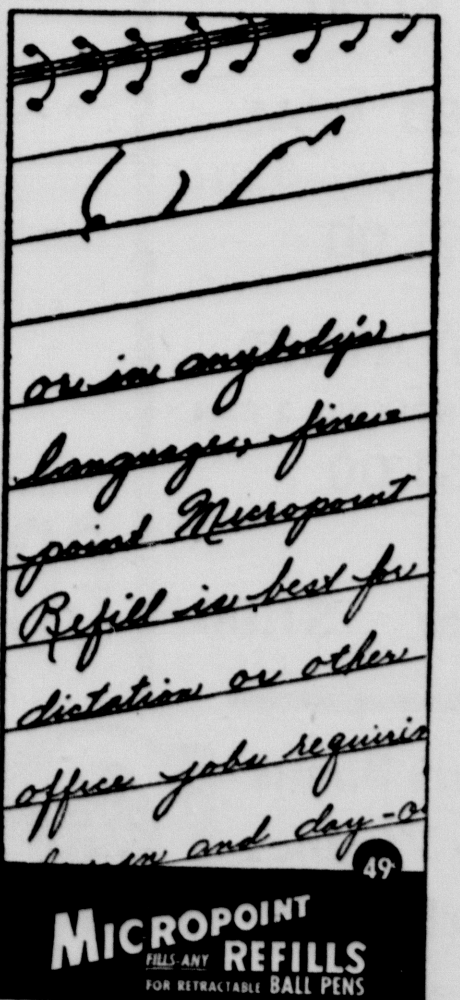 or in anybody's
language, fine-
point Micropoint
Refill is best for
dictation or other
office jobs requirin
and day-o
49¢
MICROPOINT
FILLS ANY REFILLS
FOR RETRACTABLE BALL PENS